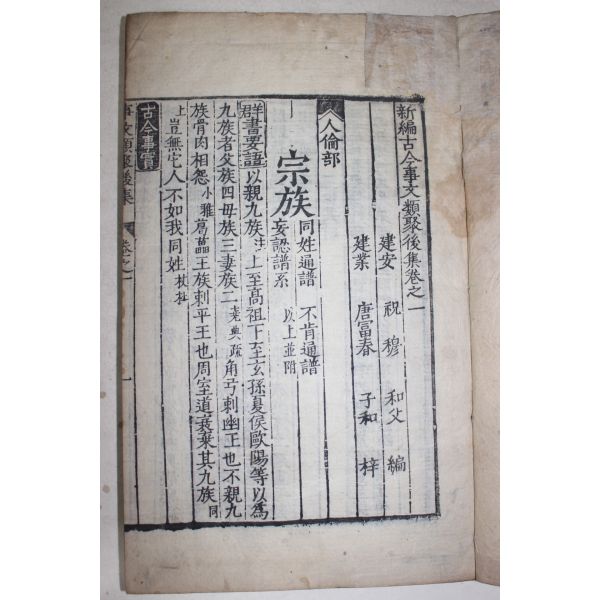 新編古今事文類聚後集卷之一
建安 祝穆 和父 編
建業 唐富春 子和 梓
人倫部
宗族 同姓通譜 不肯通譜
妄認譜系 以上並附
群書要語 以親九族 注上至高祖下至玄孫夏侯歐陽等以爲
九族者父族四母族三妻族二 堯典疏 角弓刺幽王也不親九
族骨肉相怨 小雅 葛藟王族刺平王也周室道衰棄其九族 同
上 豈無它人不如我同姓 杕杜
古今事實
事文類聚後集 卷之一 一